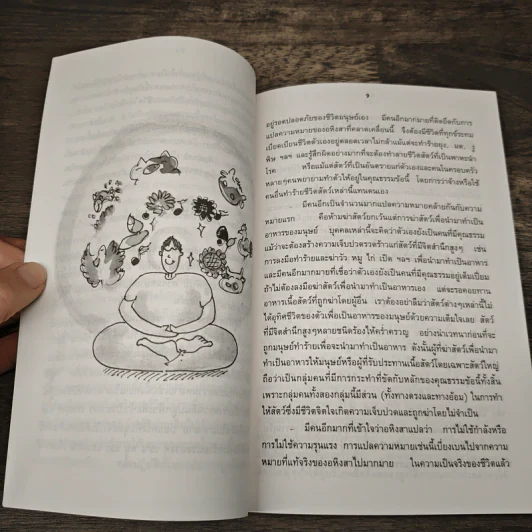 9
อยู่รอดปลอดภัยของชีวิตมนุษย์เอง มีคนอีกมากมายที่คิดยึดกับการ
แปลความหมายของอหิงสาที่คลาดเคลื่อนนี้ จึงต้องมีชีวิตที่ทุกข์ระทม
เบียดเบียนชีวิตตัวเองอยู่ตลอดเวลาไม่กล้าแม้แต่จะทำร้ายยุง, มด, งู
พิษ ฯลฯ และรู้สึกผิดอย่างมากที่จะต้องทำลายชีวิตสัตว์ที่เป็นพาหะนำ
โรค หรือแม้แต่สัตว์ที่เป็นอันตรายแก่ตัวเองและคนในครอบครัว
หลายๆคนพยายามทำตัวให้อยู่ในคุณธรรมข้อนี้ โดยการว่าจ้างหรือใช้
คนอื่นทำร้ายชีวิตสัตว์เหล่านี้แทนตนเอง
มีคนอีกเป็นจำนวนมากแปลความหมายคล้ายกันกับความ
หมายแรก คือห้ามฆ่าสัตว์ยกเว้นแต่การฆ่าสัตว์เพื่อนำมาทำเป็น
อาหารของมนุษย์ บุคคลเหล่านี้จะคิดว่าตัวเองยังเป็นคนที่มีคุณธรรม
แม้ว่าจะต้องสร้างความเจ็บปวดรวดร้าวแก่สัตว์ที่มีจิตสำนึกสูงๆ เช่น
การลงมือทำร้ายและฆ่าวัว หมู ไก่ เป็ด ฯลฯ เพื่อนำมาทำเป็นอาหาร
และมีคนอีกมากมายที่เชื่อว่าตัวเองยังเป็นคนที่มีคุณธรรมอยู่เต็มเปี่ยม
ถ้าไม่ต้องลงมือฆ่าสัตว์เพื่อนำมาทำเป็นอาหารเอง แต่จะรอคอยทาน
อาหารเนื้อสัตว์ที่ถูกฆ่าโดยผู้อื่น เราต้องอย่าลืมว่าสัตว์ต่างๆเหล่านี้ไม่
ได้อุทิศชีวิตของตัวเพื่อเป็นอาหารของมนุษย์ด้วยความเต็มใจเลย สัตว์
ที่มีจิตสำนึกสูงๆหลายชนิดร้องไห้คร่ำครวญ อย่างน่าเวทนาก่อนที่จะ
ถูกมนุษย์ทำร้ายเพื่อจะนำมาทำเป็นอาหาร ดังนั้นผู้ที่ฆ่าสัตว์เพื่อนำมา
ทำเป็นอาหารให้มนุษย์หรือผู้ที่รับประทานเนื้อสัตว์โดยเฉพาะสัตว์ใหญ่
ถือว่าเป็นกลุ่มคนที่มีการกระทำที่ขัดกับหลักของคุณธรรมข้อนี้ทั้งสิ้น
เพราะกลุ่มคนทั้งสองกลุ่มนี้มีส่วน (ทั้งทางตรงและทางอ้อม) ในการทำ
ให้สัตว์ซึ่งมีชีวิตจิตใจเกิดความเจ็บปวดและถูกฆ่าโดยไม่จำเป็น
- มีคนอีกมากที่เข้าใจว่าอหิงสาแปลว่า การไม่ใช้กำลังหรือ
การไม่ใช้ความรุนแรง การแปลความหมายเช่นนี้เบี่ยงเบนไปจากความ
หมายที่แท้จริงของอหิงสาไปมากมาย ในความเป็นจริงของชีวิตแล้ว